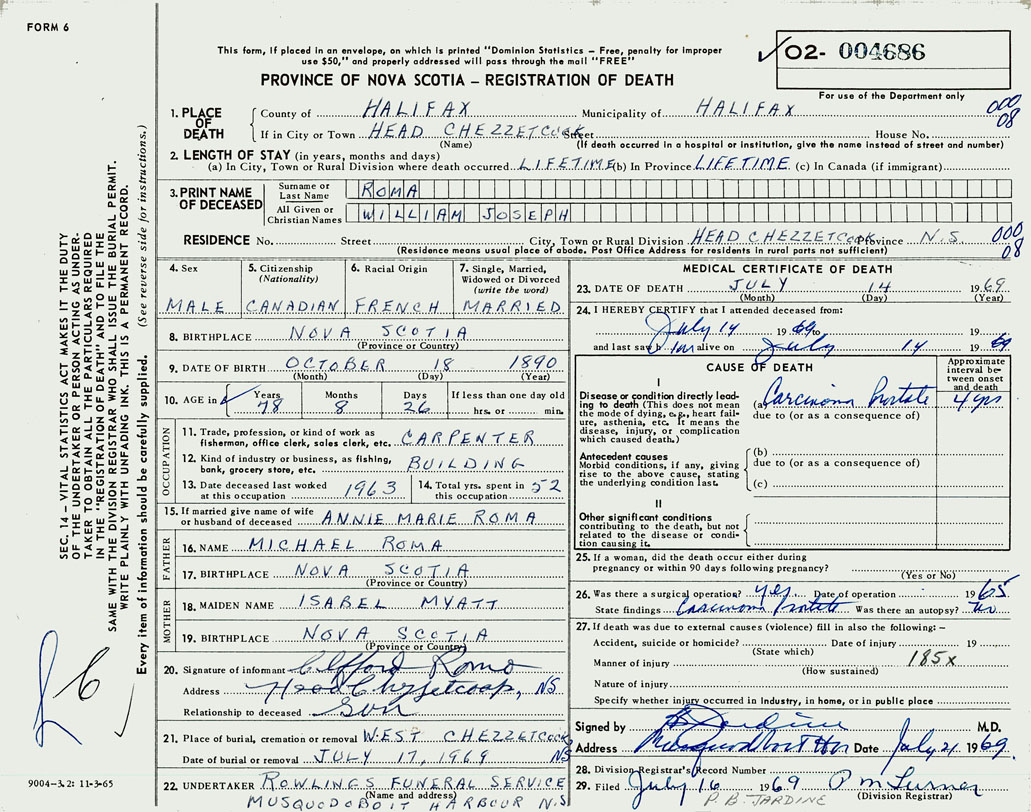 FORM 6
This form, if placed in an envelope, on which is printed "Dominion Statistics – Free, penalty for improper
use $50," and properly addressed will pass through the mail "FREE"
PROVINCE OF NOVA SCOTIA – REGISTRATION OF DEATH
✓ O2- 004686
For use of the Department only
1. PLACE OF DEATH
County of HALIFAX Municipality of HALIFAX 000
08
If in City or Town HEAD CHEZZETCOOK Street House No.
(Name) (If death occurred in a hospital or institution, give the name instead of street and number)
2. LENGTH OF STAY (in years, months and days)
(a) In City, Town or Rural Division where death occurred LIFETIME (b) In Province LIFETIME (c) In Canada (if immigrant)
3. PRINT NAME OF DECEASED
Surname or Last Name ROMA
All Given or Christian Names WILLIAM JOSEPH
RESIDENCE No. Street City, Town or Rural Division HEAD CHEZZETCOOK Province N.S. 000
08
(Residence means usual place of abode. Post Office Address for residents in rural parts not sufficient)
4. Sex MALE
5. Citizenship (Nationality) CANADIAN
6. Racial Origin FRENCH
7. Single, Married, Widowed or Divorced (write the word) MARRIED
8. BIRTHPLACE NOVA SCOTIA
(Province or Country)
9. DATE OF BIRTH OCTOBER 18 1890
(Month) (Day) (Year)
10. AGE in ✓ Years 78 Months 8 Days 26 If less than one day old hrs. or min.
OCCUPATION
11. Trade, profession, or kind of work as
fisherman, office clerk, sales clerk, etc. CARPENTER
12. Kind of industry or business, as fishing,
bank, grocery store, etc. BUILDING
13. Date deceased last worked
at this occupation 1963
14. Total yrs. spent in
this occupation 52
15. If married give name of wife
or husband of deceased ANNIE MARIE ROMA
FATHER
16. NAME MICHAEL ROMA
17. BIRTHPLACE NOVA SCOTIA
(Province or Country)
MOTHER
18. MAIDEN NAME ISABEL MYATT
19. BIRTHPLACE NOVA SCOTIA
(Province or Country)
20. Signature of informant Clifford Roma
Address Head Chezzetcoop, NS
Relationship to deceased Son
21. Place of burial, cremation or removal WEST CHEZZETCOOK
Date of burial or removal JULY 17, 1969 NS
22. UNDERTAKER ROWLINGS FUNERAL SERVICE
(Name and address)
MUSQUODOBOIT HARBOUR N.S
MEDICAL CERTIFICATE OF DEATH
23. DATE OF DEATH JULY 14 1969
(Month) (Day) (Year)
24. I HEREBY CERTIFY that I attended deceased from:
July 14 1969 to 19
and last saw h im alive on July 14 1969
CAUSE OF DEATH
Approximate interval between onset and death
I
Disease or condition directly leading
to death (This does not mean
the mode of dying, e.g., heart failure,
asthenia, etc. It means the
disease, injury, or complication
which caused death.)
(a) Carcinoma Prostate 4 yrs
due to (or as a consequence of)
Antecedent causes
Morbid conditions, if any, giving
rise to the above cause, stating
the underlying condition last.
(b)
due to (or as a consequence of)
(c)
II
Other significant conditions
contributing to the death, but not
related to the disease or condition
causing it.
25. If a woman, did the death occur either during
pregnancy or within 90 days following pregnancy?
(Yes or No)
26. Was there a surgical operation? yes Date of operation 1965
State findings Carcinoma Prostate Was there an autopsy?
27. If death was due to external causes (violence) fill in also the following: –
Accident, suicide or homicide? Date of injury 19
(State which)
Manner of injury 185x
(How sustained)
Nature of injury
Specify whether injury occurred in industry, in home, or in public place
Signed by Jardine M.D.
Address Musquodoboit Hbr Date July 21 1969
28. Division Registrar's Record Number
29. Filed July 16 1969 P M Turner
(Division Registrar)
P. B. JARDINE
SEC. 14 – VITAL STATISTICS ACT MAKES IT THE DUTY
OF THE UNDERTAKER OR PERSON ACTING AS UNDERTAKER
TO OBTAIN ALL THE PARTICULARS REQUIRED
IN THE "REGISTRATION OF DEATH" AND TO FILE THE
SAME WITH THE DIVISION REGISTRAR WHO SHALL ISSUE THE BURIAL PERMIT.
WRITE PLAINLY WITH UNFADING INK. THIS IS A PERMANENT RECORD.
Every item of information should be carefully supplied. (See reverse side for instructions.)
9004-3.2: 11-3-65